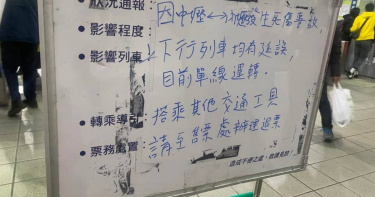 狀況通報：因中壢↔埔心發生死傷事故
影響程度：
影響列車：上下行列車均有延誤，
目前單線運轉．
轉乘導引：搭乘其他交通工具
票務處置：請至售票處辦理退票
造成不便之處，敬請見諒！